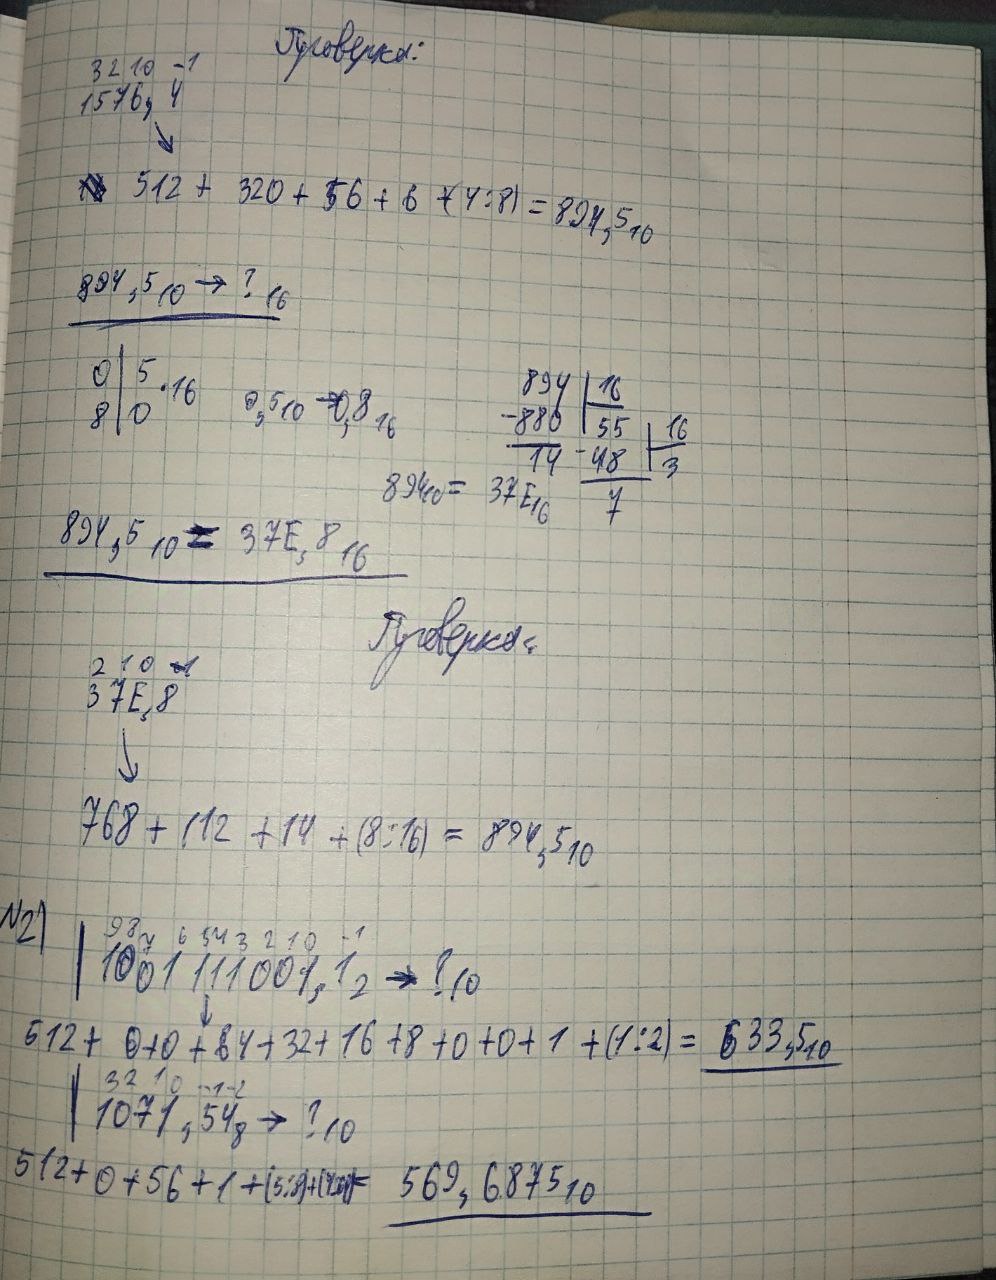 Проверка:
3210 -1
1576, 4
↓
512 + 320 + 56 + 6 + (4:8) = 894,5₁₀
894,5₁₀ → ?₁₆
0 | 5 ·16
8 | 0
0,5₁₀ → 0,8₁₆
894 | 16
-880 | 55 | 16
14 -48 | 3
7
894₁₀ = 37E₁₆
894,5₁₀ = 37E,8₁₆
Проверка:
2 1 0 -1
37E,8
↓
768 + 112 + 14 + (8:16) = 894,5₁₀
№2)
9 8 7 6 5 4 3 2 1 0 -1
1001111001,1₂ → ?₁₀
↓
512 + 0+0 + 64 + 32 + 16 + 8 + 0 + 0 + 1 + (1:2) = 633,5₁₀
3 2 1 0 -1 -2
1071,54₈ → ?₁₀
512 + 0 + 56 + 1 + (5:8) + = 569,6875₁₀